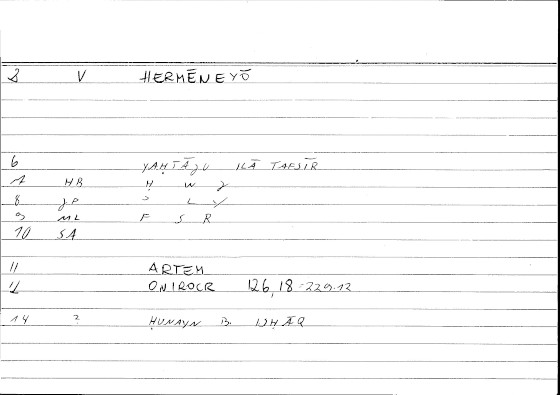 8 V HERMĒNEYŌ
6 YAḤTĀǦU ILĀ TAFSĪR
7 HB Ḥ W Ǧ
8 JP ʾ L Y
9 ML F S R
10 SA
11 ARTEM
12 ONIROCR 126,18-229.12
14 ? ḤUNAYN B. ISḤĀQ